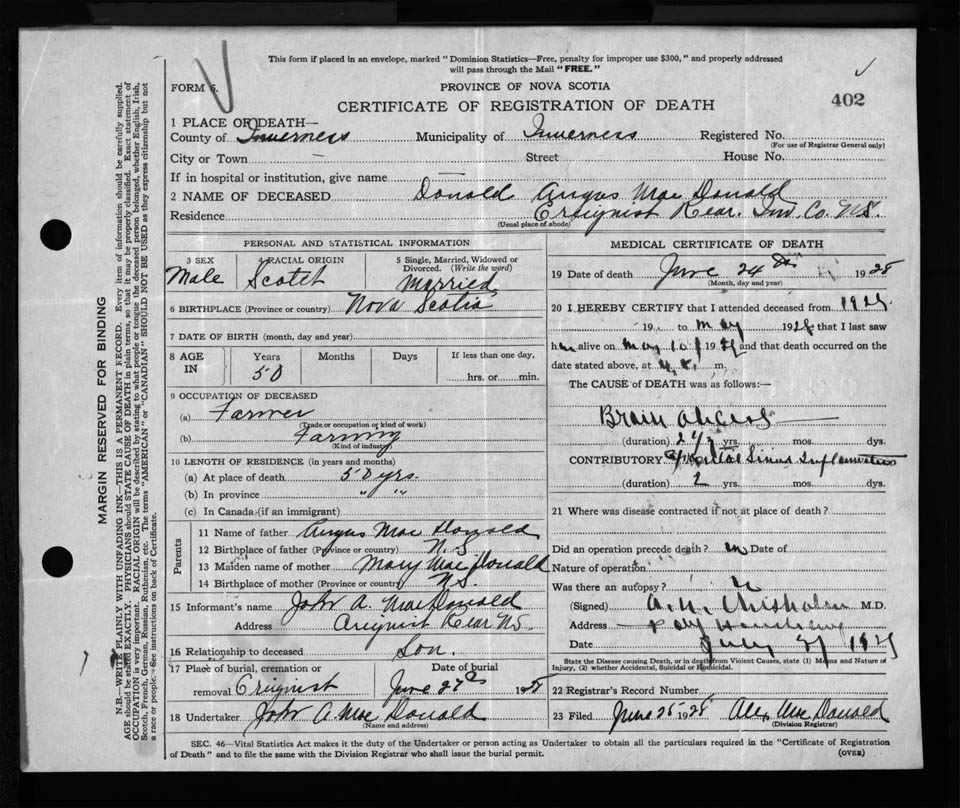 This form if placed in an envelope, marked "Dominion Statistics—Free, penalty for improper use $300," and properly addressed
will pass through the Mail "FREE."
FORM 6.
PROVINCE OF NOVA SCOTIA
CERTIFICATE OF REGISTRATION OF DEATH
402
1 PLACE OF DEATH—
County of Inverness Municipality of Inverness Registered No.
(For use of Registrar General only)
City or Town — Street House No.
If in hospital or institution, give name —
2 NAME OF DECEASED Donald Angus MacDonald
Residence Rear. Inv. Co. N.S.
(Usual place of abode)
PERSONAL AND STATISTICAL INFORMATION
3 SEX 4 RACIAL ORIGIN 5 Single, Married, Widowed or
Divorced. (Write the word)
Male Scotch Married
6 BIRTHPLACE (Province or country) Nova Scotia
7 DATE OF BIRTH (month, day and year)
8 AGE IN Years Months Days If less than one day,
50 hrs. or min.
9 OCCUPATION OF DECEASED
(a) Farmer
(Trade or occupation or kind of work)
(b) Farming
(Kind of industry)
10 LENGTH OF RESIDENCE (in years and months)
(a) At place of death 50 yrs.
(b) In province " "
(c) In Canada (if an immigrant)
Parents
11 Name of father Angus MacDonald
12 Birthplace of father (Province or country) N.S.
13 Maiden name of mother Mary MacDonald
14 Birthplace of mother (Province or country) N.S.
15 Informant's name John A. MacDonald
Address Rear N.S.
16 Relationship to deceased Son.
17 Place of burial, cremation or Date of burial
removal June 27th 1928
18 Undertaker John A. MacDonald
(Name and address)
MEDICAL CERTIFICATE OF DEATH
19 Date of death June 24th 1928
(Month, day and year)
20 I HEREBY CERTIFY that I attended deceased from
19 to May 1928 that I last saw
him alive on May 19 and that death occurred on the
date stated above, at m.
The CAUSE of DEATH was as follows:—
Brain abcess
(duration) 2 1/2 yrs. mos. dys.
CONTRIBUTORY Frontal Sinus Inflamation
(duration) 2 yrs. mos. dys.
21 Where was disease contracted if not at place of death?
Did an operation precede death? no Date of
Nature of operation
Was there an autopsy?
(Signed) Chisholm M.D.
Address Port
Date July
State the Disease causing Death, or in death from Violent Causes, state (1) Means and Nature of
Injury, (2) whether Accidental, Suicidal or Homicidal.
22 Registrar's Record Number
23 Filed June 25 1928 Alex MacDonald
(Division Registrar)
SEC. 46—Vital Statistics Act makes it the duty of the Undertaker or person acting as Undertaker to obtain all the particulars required in the "Certificate of Registration
of Death" and to file the same with the Division Registrar who shall issue the burial permit.
(OVER)
MARGIN RESERVED FOR BINDING
N.B.—WRITE PLAINLY WITH UNFADING INK—THIS IS A PERMANENT RECORD. Every item of information should be carefully supplied.
AGE should be stated EXACTLY. PHYSICIANS should STATE CAUSE OF DEATH in plain terms, so that it may be properly classified. Exact statement of
OCCUPATION is very important. RACIAL ORIGIN will be described by stating to what people or tongue the deceased person belonged, whether English, Irish,
Scotch, French, German, Russian, Ruthenian, etc. The terms "AMERICAN" or "CANADIAN" SHOULD NOT BE USED as they express citizenship but not
a race or people. See instructions on back of Certificate.